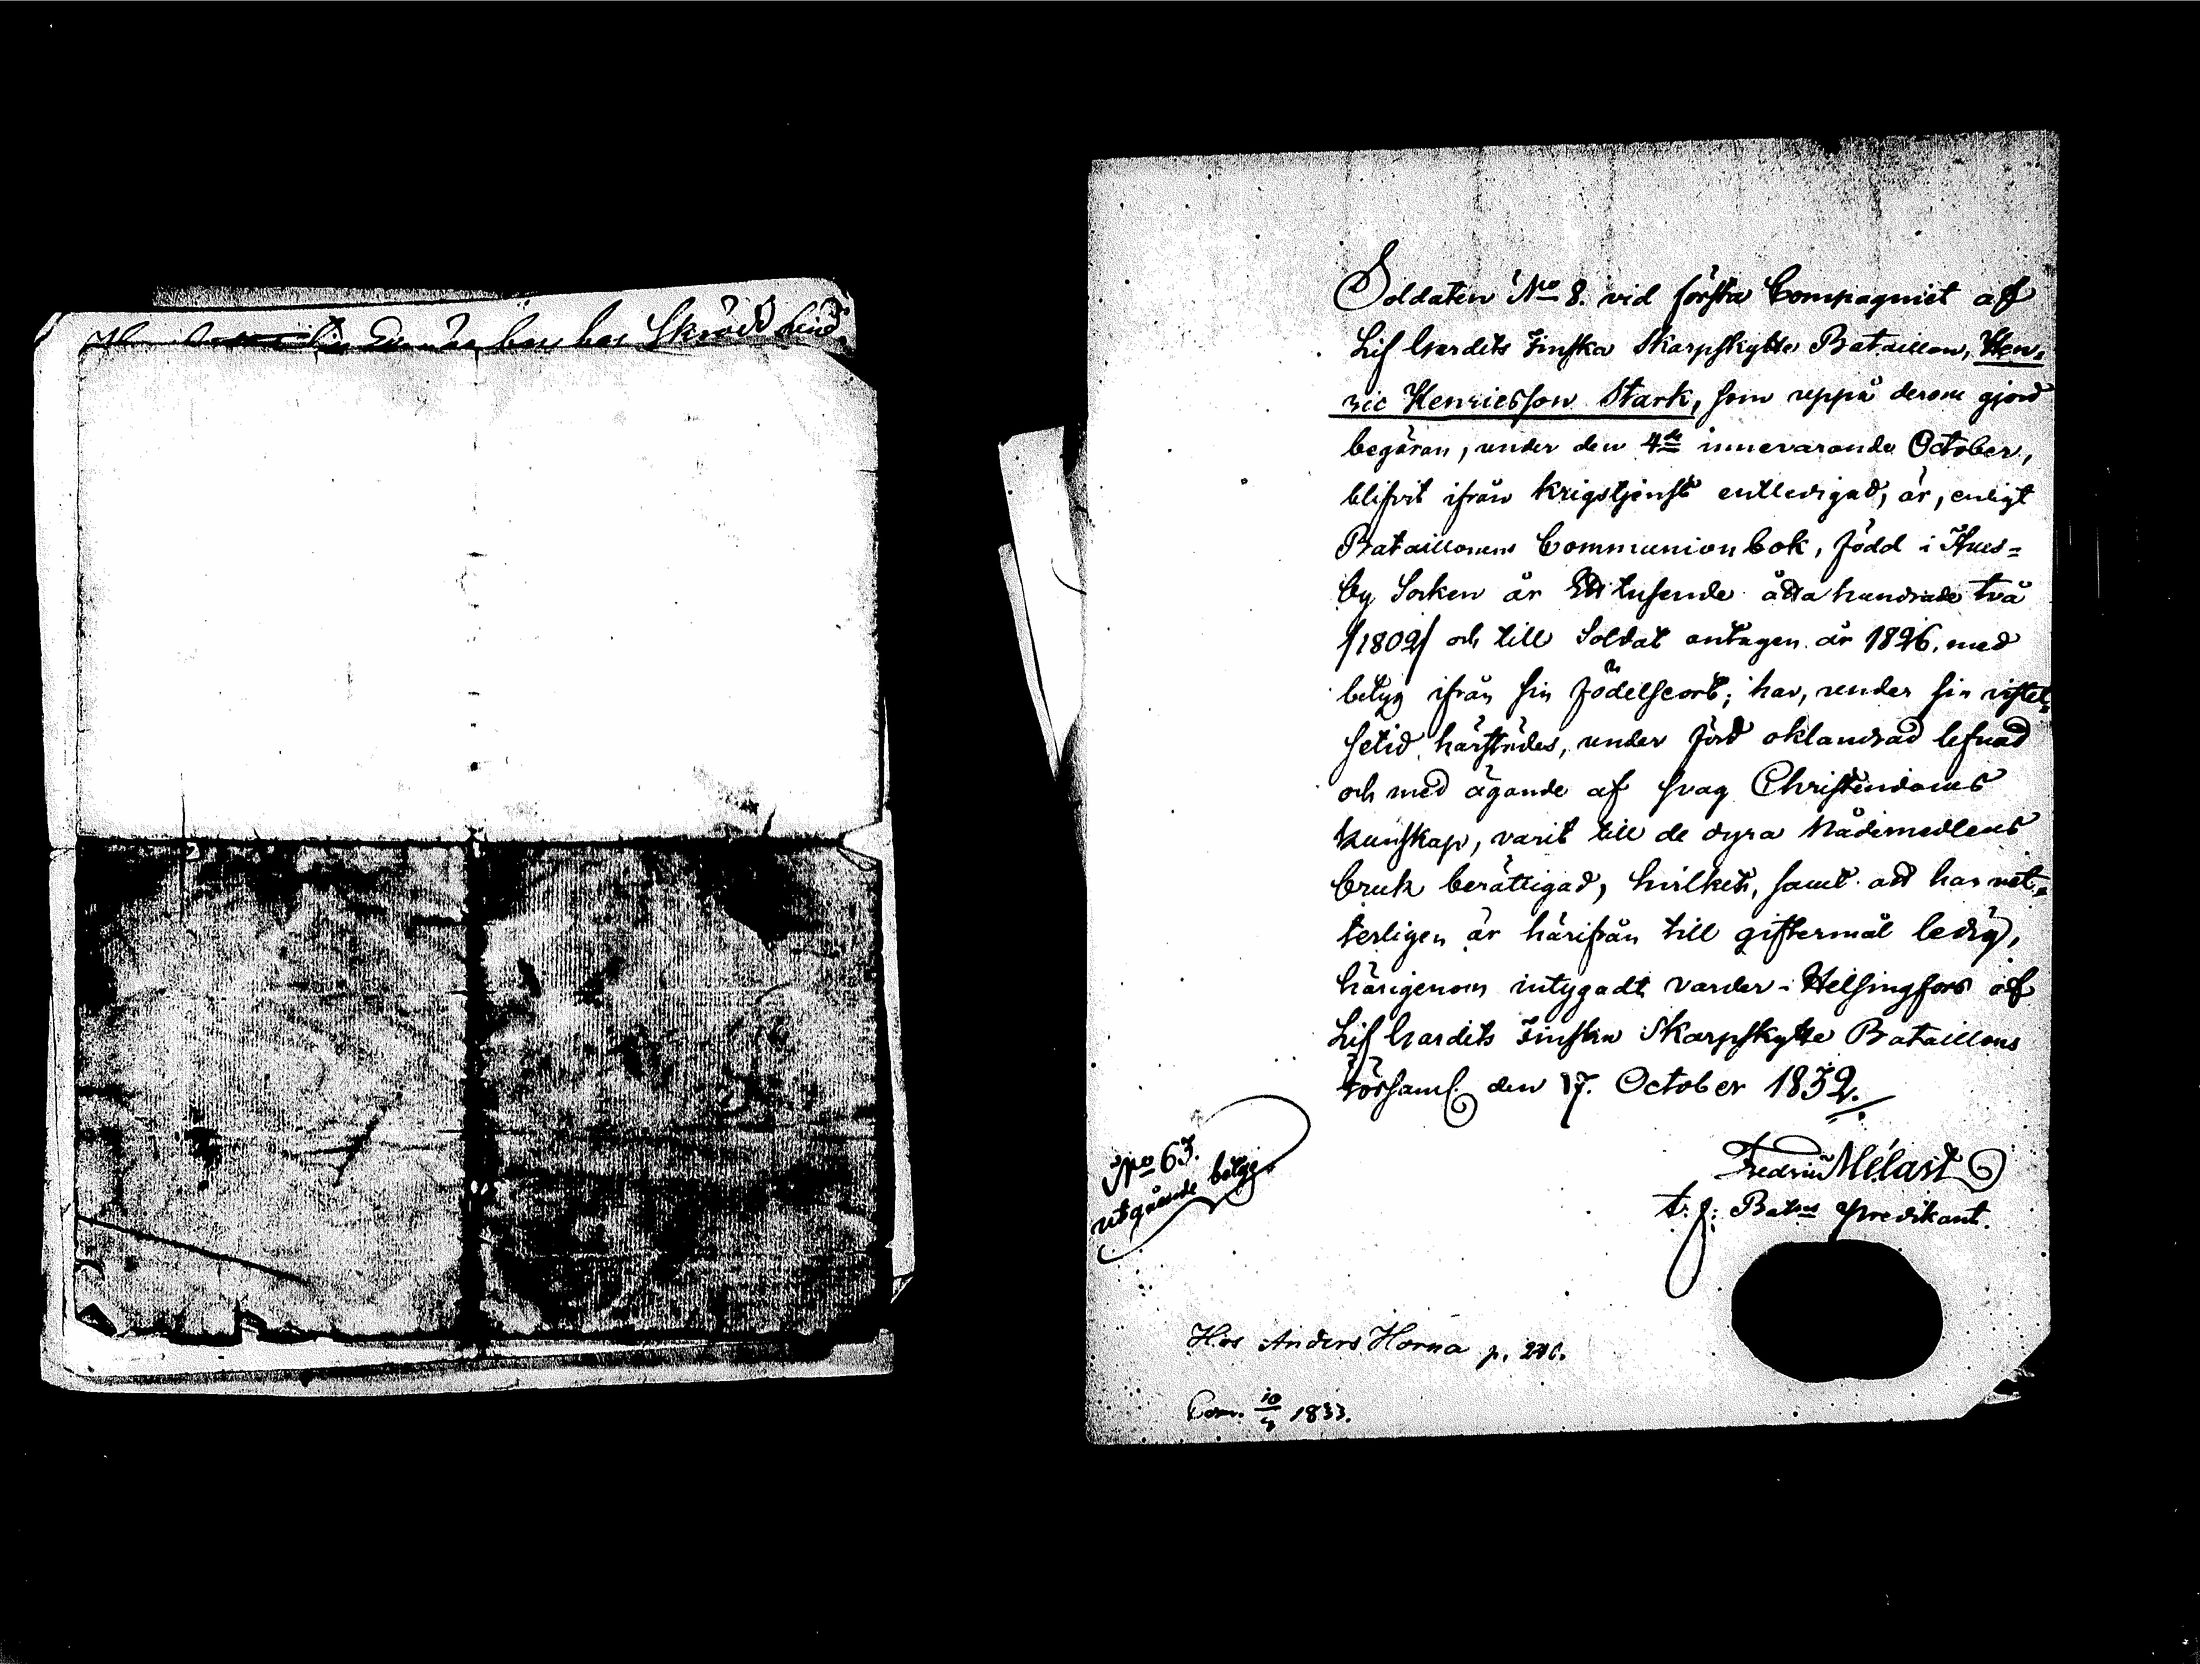 Skrädd
Soldaten No 8. vid första Compagniet af
Lif Gardets Finska Skarpskytte Bataillon, Hen=
ric Henricsson Stark, som uppå derom gjord
begäran, under den 4de innevarande October,
blifvit ifrån Krigstjenst entledigad, är, enligt
Bataillonens Communionbok, född i Hus=
by Socken år Ett tusende åtta hundrade två
/1802/ och till Soldat antagen år 1826. med
betyg ifrån sin födelseort; har, under sin vistel=
setid härstädes, under förd oklandrad lefnad
och med ägande af svag Christendoms
kunskap, varit till de dyra Nådemedlens
bruk berättigad, hvilket, samt att han vet=
terligen är härifrån till giftermål ledig,
härigenom intygadt varder i Helsingfors af
Lif Gardets Finska Skarpskytte Bataillons
Församl. den 17. October 1832.
Fredric Melart
t. f. Batns Predikant.
No 63.
utgående betyg
Hos Anders Horna p.
Com. 10/3 1833.